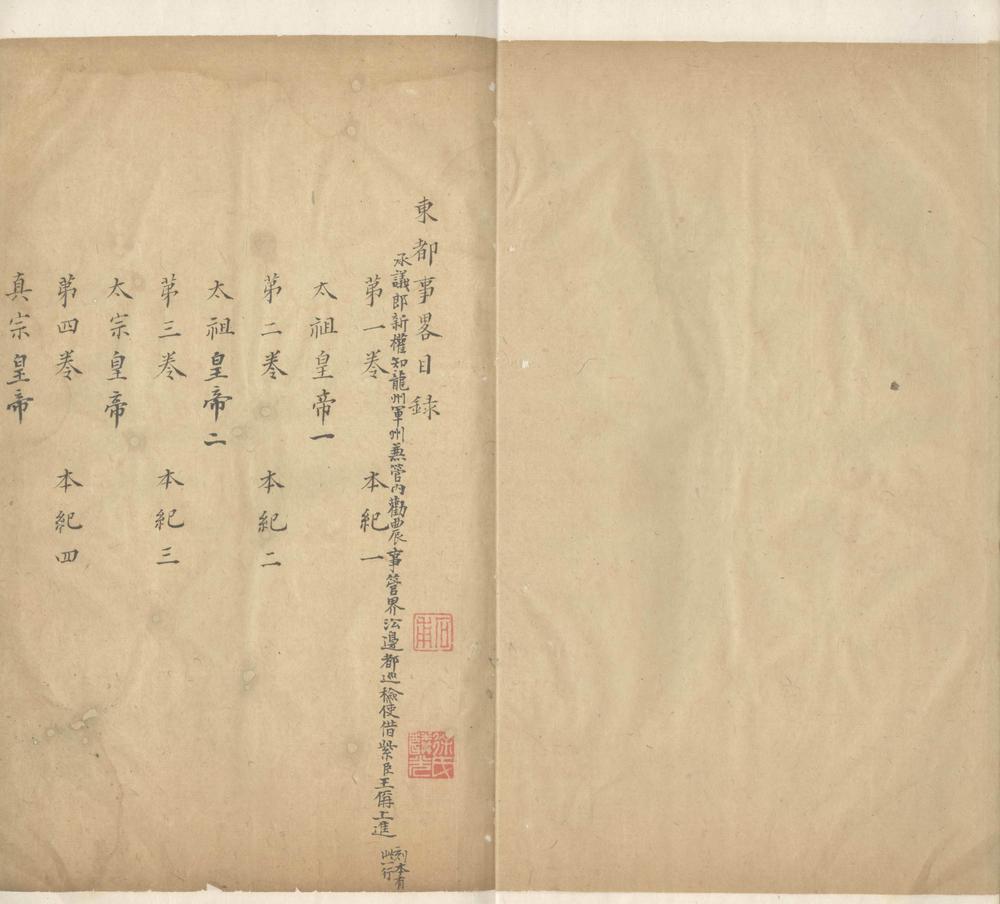 東都事畧目錄
承議郎新權知龍州軍州兼管內勸農事管界沿邊都巡檢使借紫臣王偁上進
刻本有
此一行
第一卷 本紀一
太祖皇帝一
第二卷 本紀二
太祖皇帝二
第三卷 本紀三
太宗皇帝
第四卷 本紀四
真宗皇帝